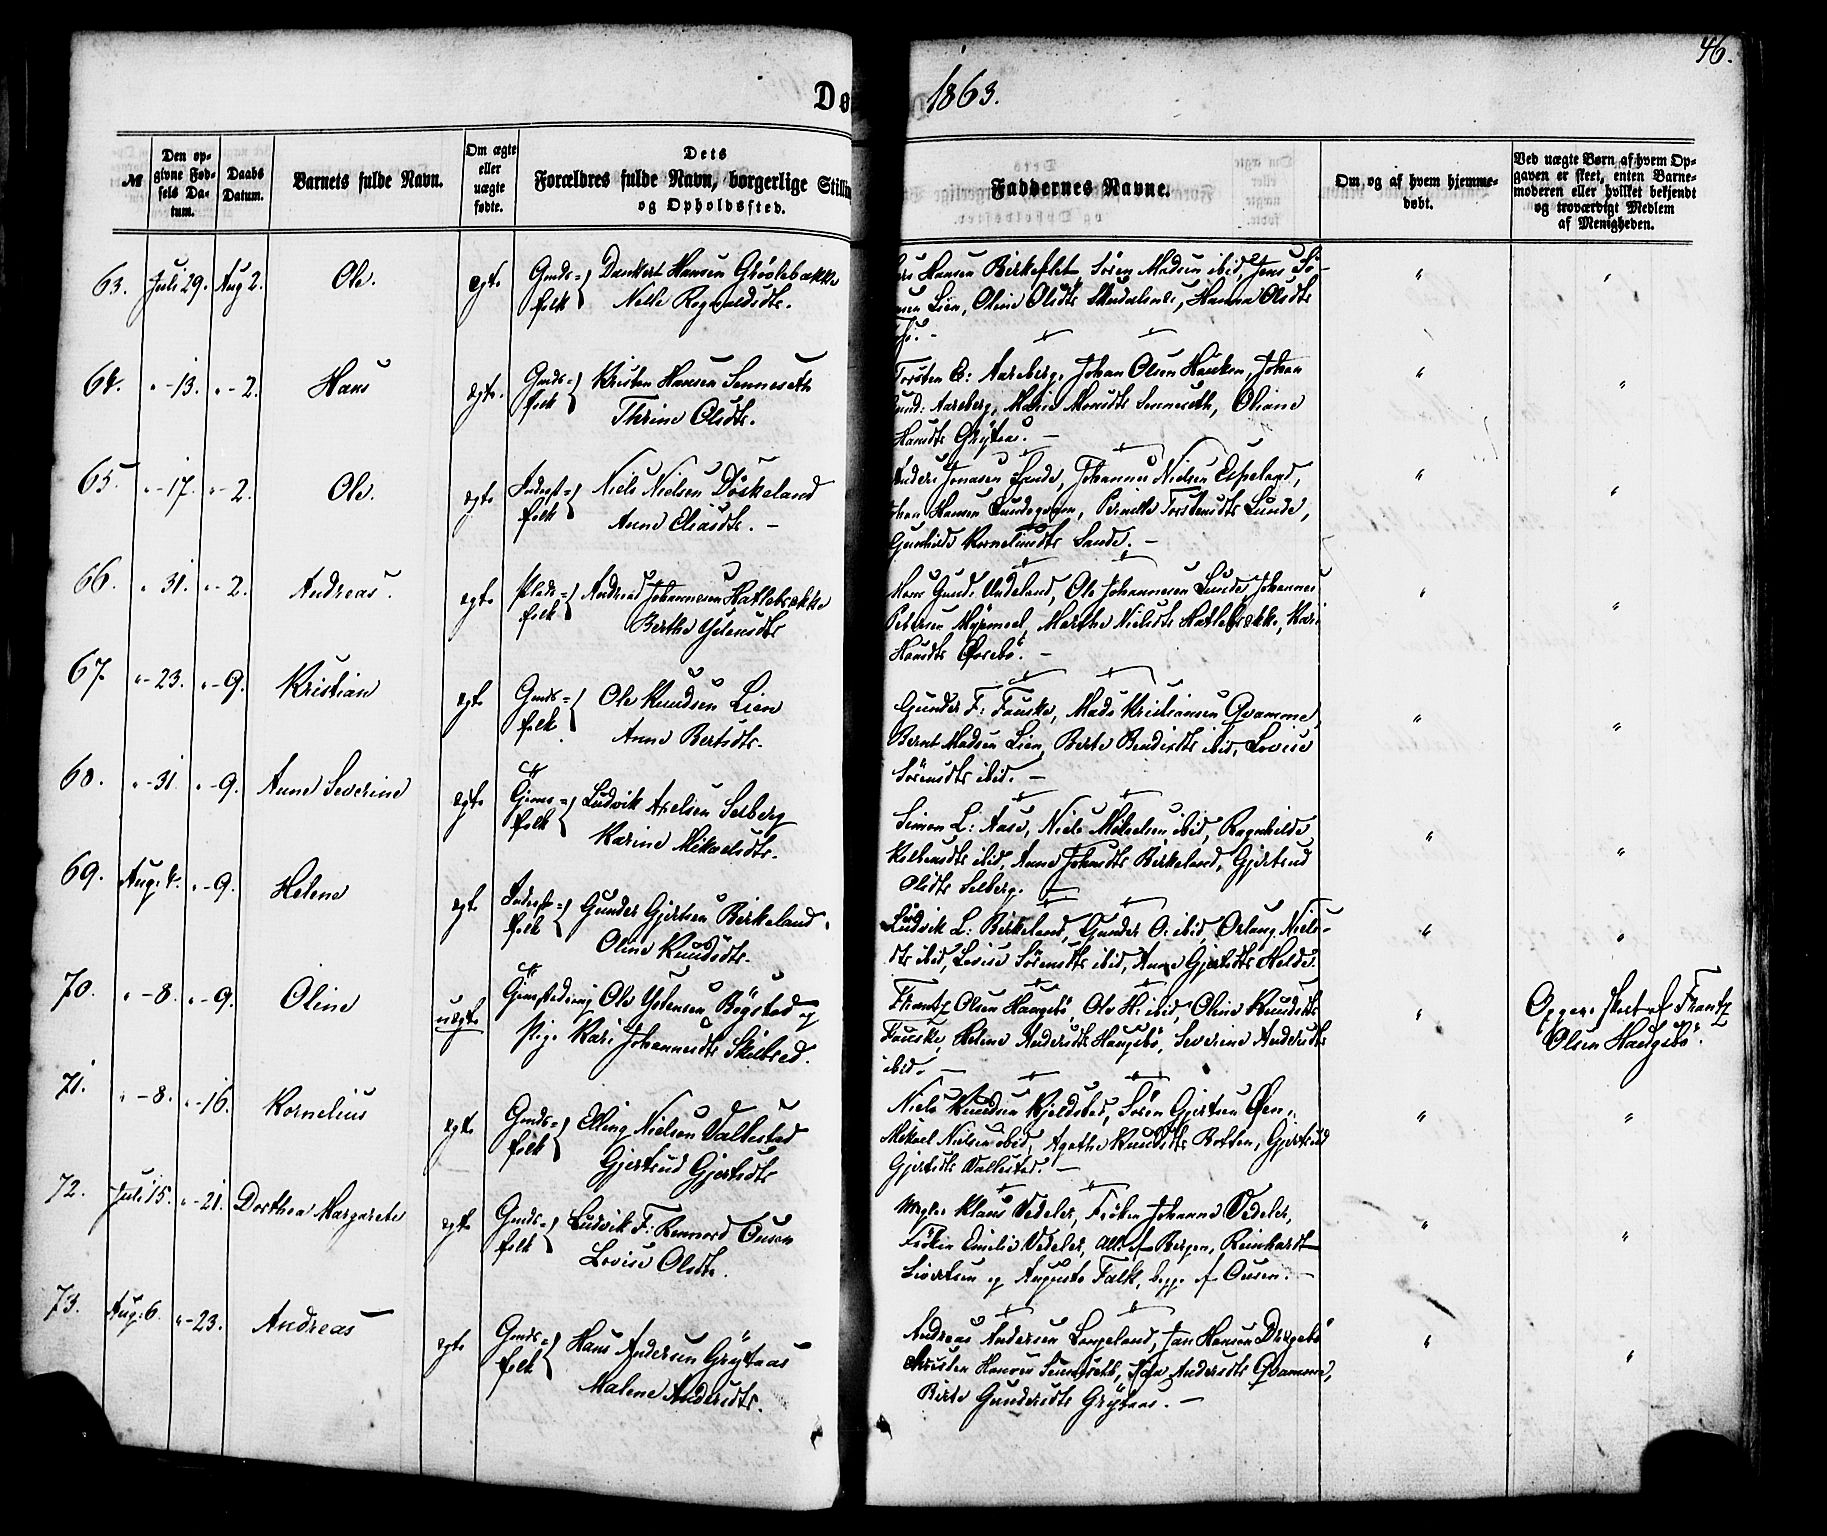 Dø
1863.
46.
№
Den op-
givne Fød-
sels Da-
tum.
Daabs
Datum.
Barnets fulde Navn.
Om ægte
eller
uægte
fødte.
Dets
Forældres fulde Navn, borgerlige Stillin
og Opholdssted.
Faddernes Navne.
Om og af hvem hjemme-
døbt.
Ved uægte Børn af hvem Op-
gaven er skeet, enten Barne-
moderen eller hvilket bekjendt
og troværdigt Medlem
af Menigheden.
63. Juli 29. Aug 2. Ole. egte Gmds= folk Dankert Hansen
Nille Rognaldsdtr.
Hansen Birkeflet, Sören Madsen ibid, Jens Sö-
Lien, Oline Olsdtr, Hanna Olsdtr
64. "-13. "-2. Hans ægte. Gmds= folk Kristen Hansen Senneseth
Thrine Olsdtr.
Torsten E: Aareberg, Johan Olsen Hauken, Johan
Gund: Aareberg, Marie Monsdtr Senneseth, Oliane
Hansdtr Grytaas. -
65. "-17. "-2. Ole. egte Inderst= folk Niels Nielsen Döskeland
Anne Eliasdtr. -
Anders Jonasen Sande, Johannes Nielsen Espeland,
Johan Hansen, Pernille Torstensdtr Lunde,
Gunhilde Korneliusdtr Sande. -
66. "31. "-2. Andreas. egte Plads= folk Andreas Johannesen Hatlebrække
Berthe Ystensdtr
Hans Gund: Undeland, Ole Johannesen Lunde, Johannes
Petersen, Marthe Nielsdtr Hatlebrække, Kari
Hansdtr Övrebö. -
67. "-23. "-9. Kristian egte Gmds= folk Ole Knudsen Lien
Anne Bertsdtr.
Gunder F: Fauske, Mads Kristiansen Qvamme,
Bernt Madsen Lien, Berte Bendixdtr ibid, Lovise
Sörensdtr ibid. -
68. "-31. "-9. Anne Severine ægte folk Ludvik Axelsen Selberg
Karine Mikaelsdtr.
Simon L: Aase, Niels Mikelsen ibid, Ragnhilde
ibid, Anne Johnsdtr Birkeland, Gjertrud
Olsdtr Selberg. -
69. Aug: 4. "-9. Helene egte Inderst= folk Gunder Gjertsen Birkeland.
Oline Knudsdtr.
Ludvik L: Birkeland, Gunder O: ibid, Niels-
dtr ibid, Lovise Sörensdtr ibid, Anne Gjertsdtr Helde.
70. "-8. "-9. Oline uægte Ole Ystensen Bögstad og
Pige Kari Johannesdtr Skilbred.
Frantz Olsen Haugsbö, Ole H: ibid, Oline Knudsdtr
Fauske, Helene Andersdtr Haugsbö, Severine Andersdtr
ibid. -
Opgav: skeet af Frantz
Olsen Haugsbö.
71. "-8. "-16. Kornelius egte Gmds= folk Elling Nielsen Vallestad
Gjertrud Gjertsdtr
Niels Knudsen Kjeldsbö, Sören Gjertsen Öen,
Mikael Nielsen ibid, Agathe Knudsdtr Botten, Gjertrud
Gjertsdtr Vallestad. -
72. Juli 15. "-21. Dorthea Margarete egte Gmds= folk Ludvik F: Rennord Ousen
Lovise Olsdtr.
Mægler Klaus Vedeler, Fröken Johanne Vedeler,
Fröken Emilie Vedeler, alle af Bergen, Reinhardt
Sivertsen og Auguste Falk, begge af Ousen. -
73. Aug: 6. "-23. Andreas egte Gmds= folk Hans Andersen Grytaas
Malene Andersdtr.
Andreas Andersen Langeland, Jan Hansen
Kristen Hansen Senneseth, Andersdtr Qvamme,
Birte Gundersdtr Grytaas. -